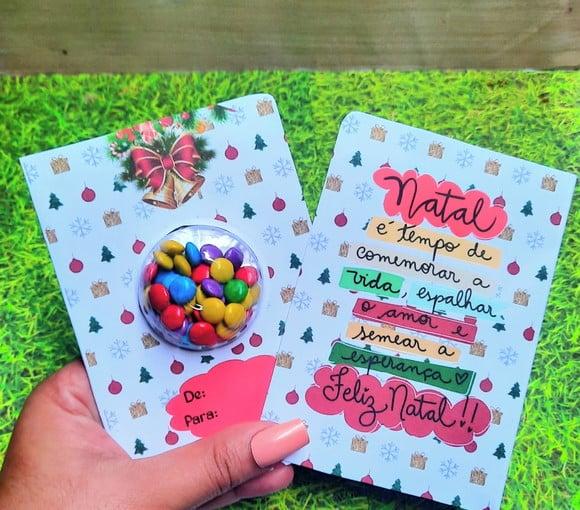 De:
Para:
Natal
é tempo de
comemorar a
vida, espalhar.
o amor e
semear a
esperança ♡
Feliz Natal!!